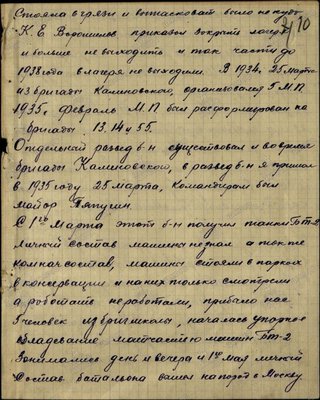 Стояла в грязи и вытаскивать было некуда
2/10
К. Е. Ворошилов приказал закрыть лагерь
и больше не выходить и так части до
1938 года в лагеря не выходили. В 1934г. 25 марта
из бригады Калиновского, организовался 5 М.П.
1935г. Февраль М.П. был расформирован на
бригады 13. 14 и 55.
Отдельный развед б-н существовал и во время
бригады Калиновской, в развед б-н я пришел
в 1935 году 25 Марта. Командиром был
майор
С 1го Марта этот б-н получил танки БТ-2
личный состав машин не знал а так же
комначсостав, машины стояли в парках
в консервации и на них только смотрели
а работать не работали, прибыло нас
5 человек из бриг школы, началась упорное
овладевание матчастью машин БТ-2
Занимались день и вечера и 1го мая личный
состав батальона вышел на парад в Москву.